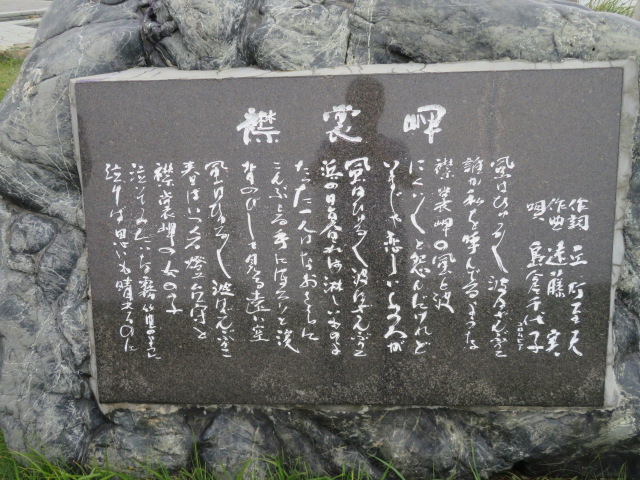 襟裳岬
作詞 丘灯至夫
作曲 遠藤 実
唄 島倉千代子
コロムビア
風はひゅるひゅる 波はざんぶりこ
誰か私を呼んでるような
襟裳岬の風と波
にくいにくいと怨んだけれど
いまじゃ恋しい
風はひゅるひゅる 波はざんぶりこ
浜の日昏れは淋しいものよ
たった一人はなおさらに
こんぶとる手にほろりと涙
背のびして見る遠い空
風はひゅるひゅる 波はざんぶりこ
春はいつくる燈台
襟裳岬の女の子
泣いてみたいな霧笛のように
泣けば思いも晴れるのに